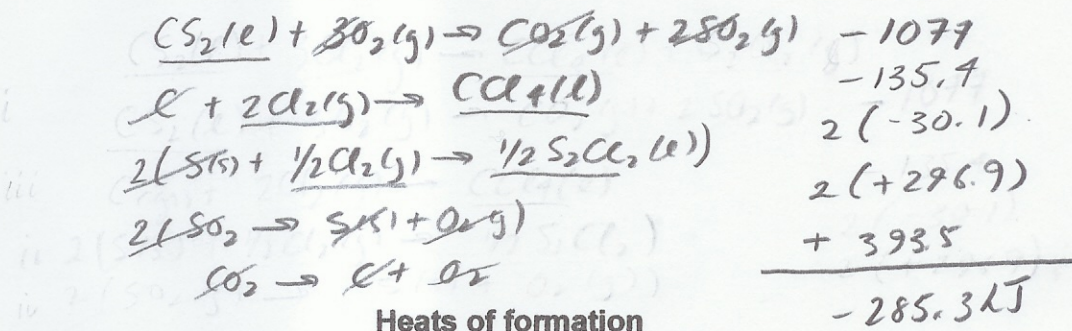 CS₂(l) + 3O₂(g) → CO₂(g) + 2SO₂(g) -1077
C + 2Cl₂(g) → CCl₄(l) -135.4
2(S(s) + 1/2Cl₂(g) → 1/2 S₂Cl₂(l)) 2(-30.1)
2(SO₂ → S(s) + O₂ g) 2(+296.9)
CO₂ → C + O₂ + 393.5
-285.3 kJ
Heats of formation